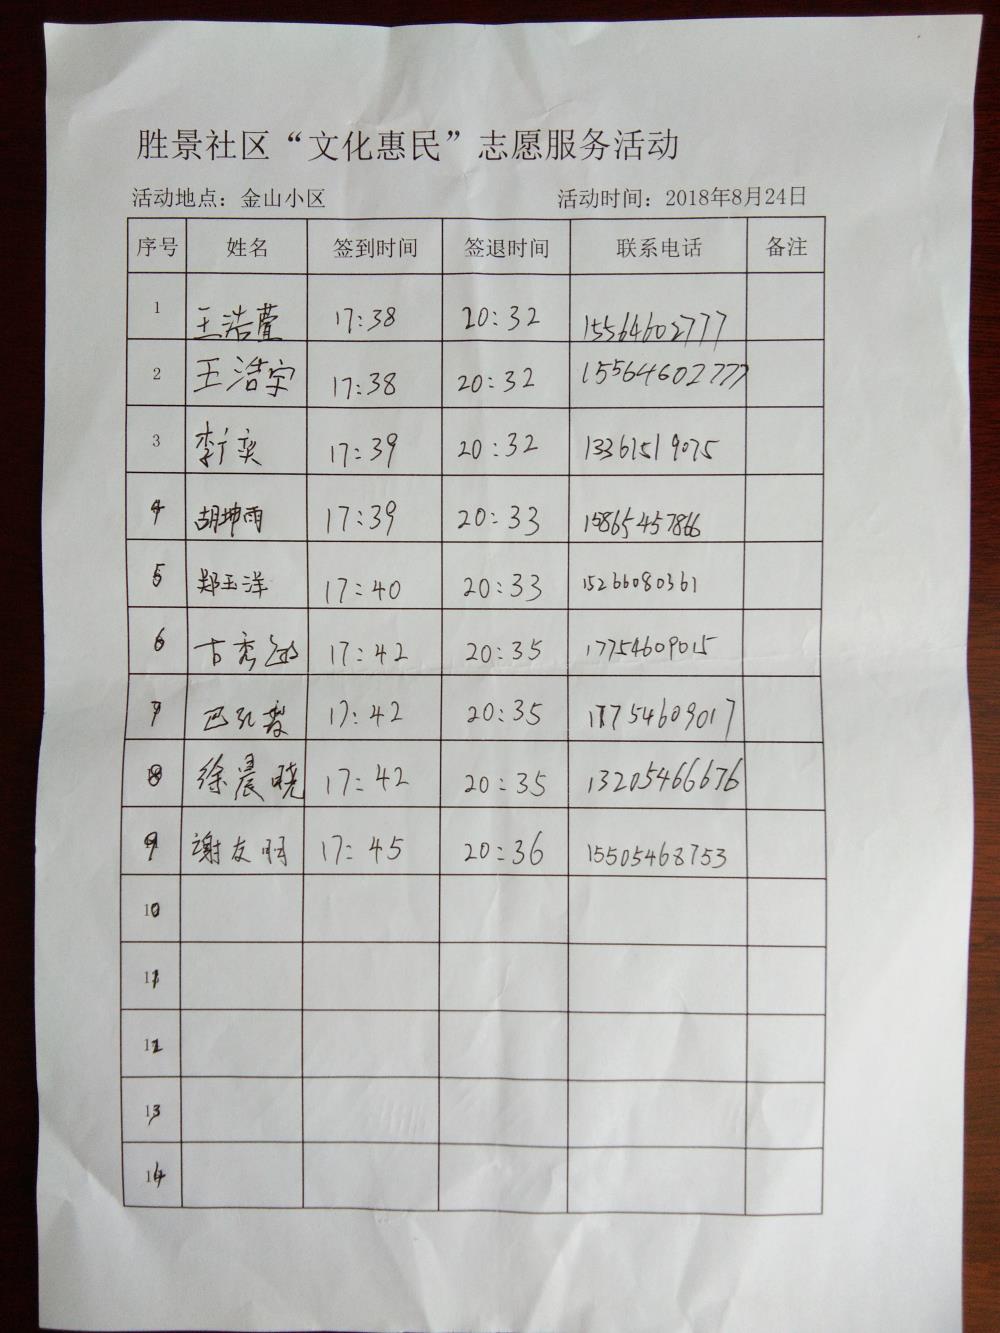 胜景社区“文化惠民”志愿服务活动
活动地点：金山小区 活动时间：2018年8月24日
序号 姓名 签到时间 签退时间 联系电话 备注
1 王浩萱 17:38 20:32 15564602777
2 王浩宇 17:38 20:32 15564602777
3 李广奕 17:39 20:32 13361519075
4 胡坤雨 17:39 20:33 15865457866
5 郑玉洋 17:40 20:33 15266080361
6 古秀 17:42 20:35 17754609015
7 17:42 20:35 17754609017
8 徐晨晓 17:42 20:35 13205466676
9 谢友明 17:45 20:36 15505468753
10
11
12
13
14